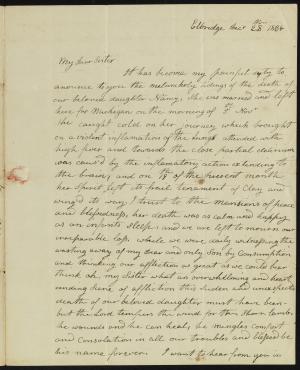 Elbridge Decr 28th
My Dear Sister
It has become my painful duty to
anounce to you the melancholy tidings of the death of
our beloved daughter Nancy, She was married and left
here for Muchegan on the morning of Nov
She caught cold on her journey which brought
on a violent inflamation of the lungs attended with
high fever and towards the close partial delirium
was caus'd by the inflamatory action extending to
the brain, and on 18th of the present month
her Spirit left its frail tenament of Clay and
wing'd its way I trust to the mansions of peace
and blessedness, her death was as calm and happy
as an infants sleep and we are left to mourn our
irreparable loss, while we were daily witnessing the
wasting away of my dear and only Son by Consumption
and thinking our affliction as great as we could bear
think oh, my Sister what an overwhelming and heart
rending scene of affliction this suden and unexpected
death of our beloved daughter must have been
but the Lord tempers the wind to the Shorn lamb,
he wounds and he can heal, he mingles comfort
and Consolation in all our troubles and blessed be
his name forever. I want to hear from you in